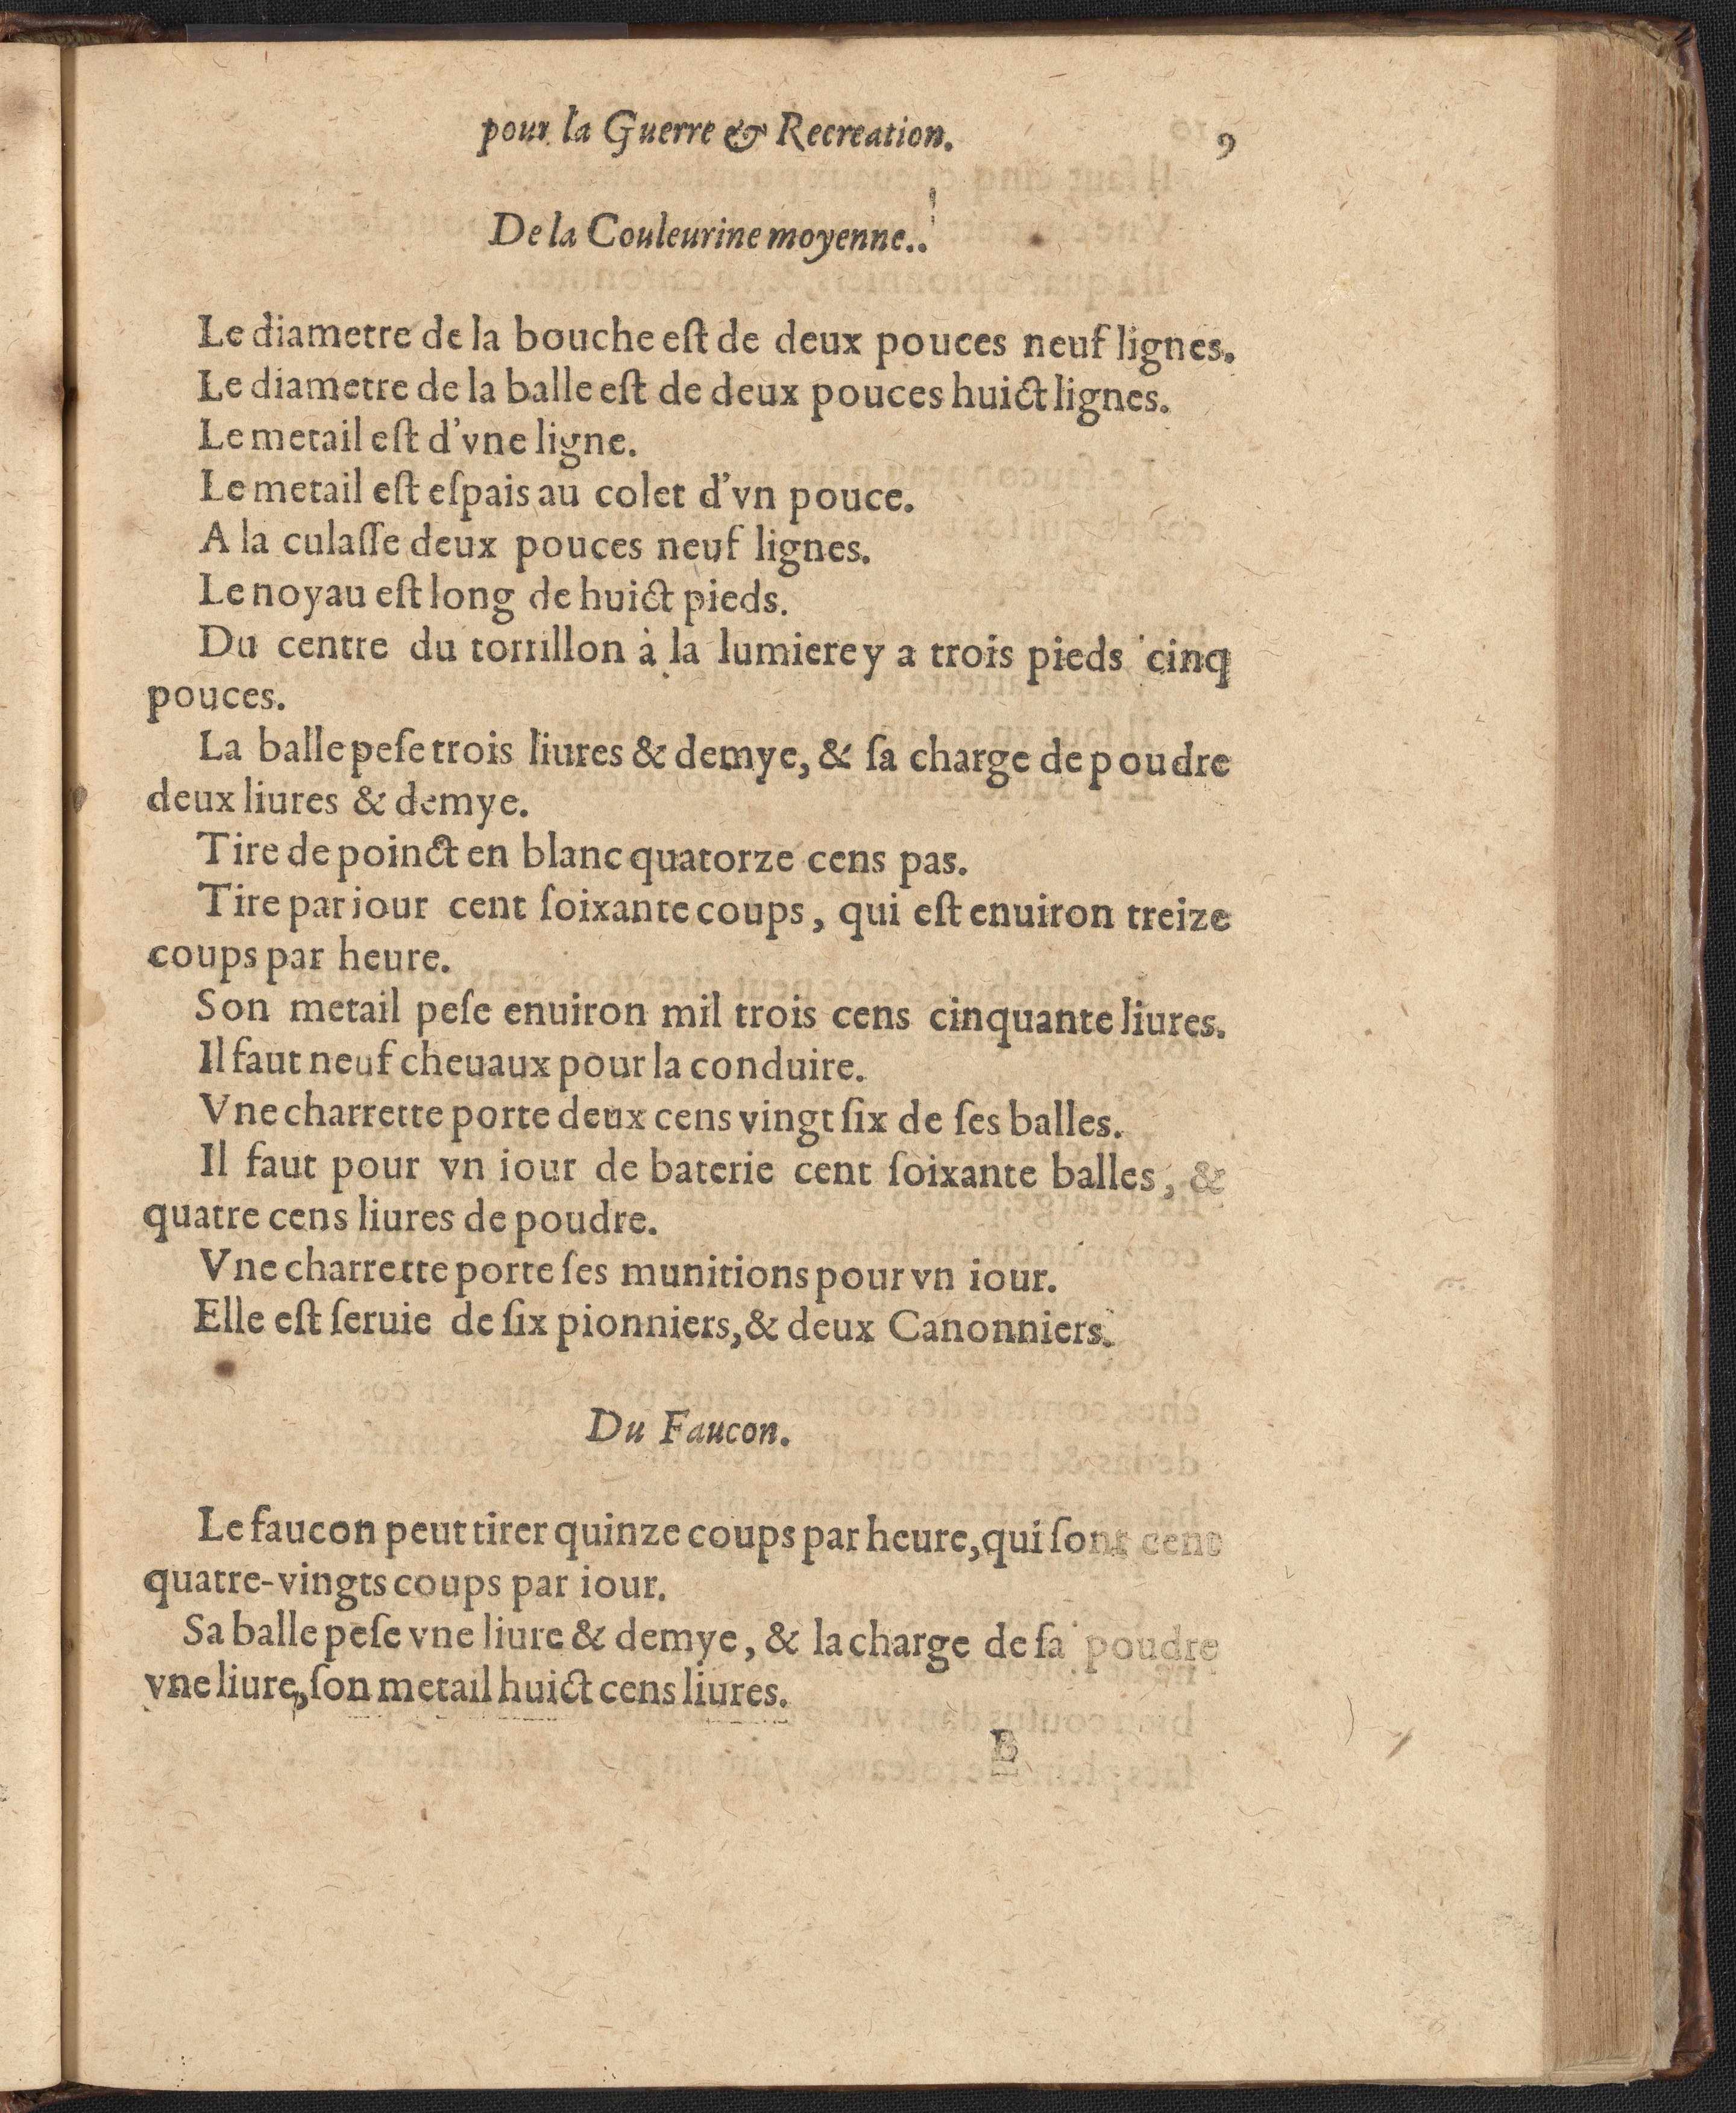 pour la Guerre & Recreation. 9
De la Couleurine moyenne..
Le diametre de la bouche eſt de deux pouces neuf lignes.
Le diametre de la balle eſt de deux pouces huict lignes.
Le metail eſt d'vne ligne.
Le metail eſt eſpais au colet d'vn pouce.
A la culaſſe deux pouces neuf lignes.
Le noyau eſt long de huict pieds.
Du centre du torrillon à la lumiere y a trois pieds cinq
pouces.
La balle peſe trois liures & demye, & ſa charge de poudre
deux liures & demye.
Tire de poinct en blanc quatorze cens pas.
Tire par iour cent ſoixante coups, qui eſt enuiron treize
coups par heure.
Son metail peſe enuiron mil trois cens cinquante liures.
Il faut neuf cheuaux pour la conduire.
Vne charrette porte deux cens vingt ſix de ſes balles.
Il faut pour vn iour de baterie cent ſoixante balles, &
quatre cens liures de poudre.
Vne charrette porte ſes munitions pour vn iour.
Elle eſt ſeruie de ſix pionniers, & deux Canonniers.
Du Faucon.
Le faucon peut tirer quinze coups par heure, qui ſont cent
quatre-vingts coups par iour.
Sa balle peſe vne liure & demye, & la charge de ſa poudre
vne liure, ſon metail huict cens liures.
B